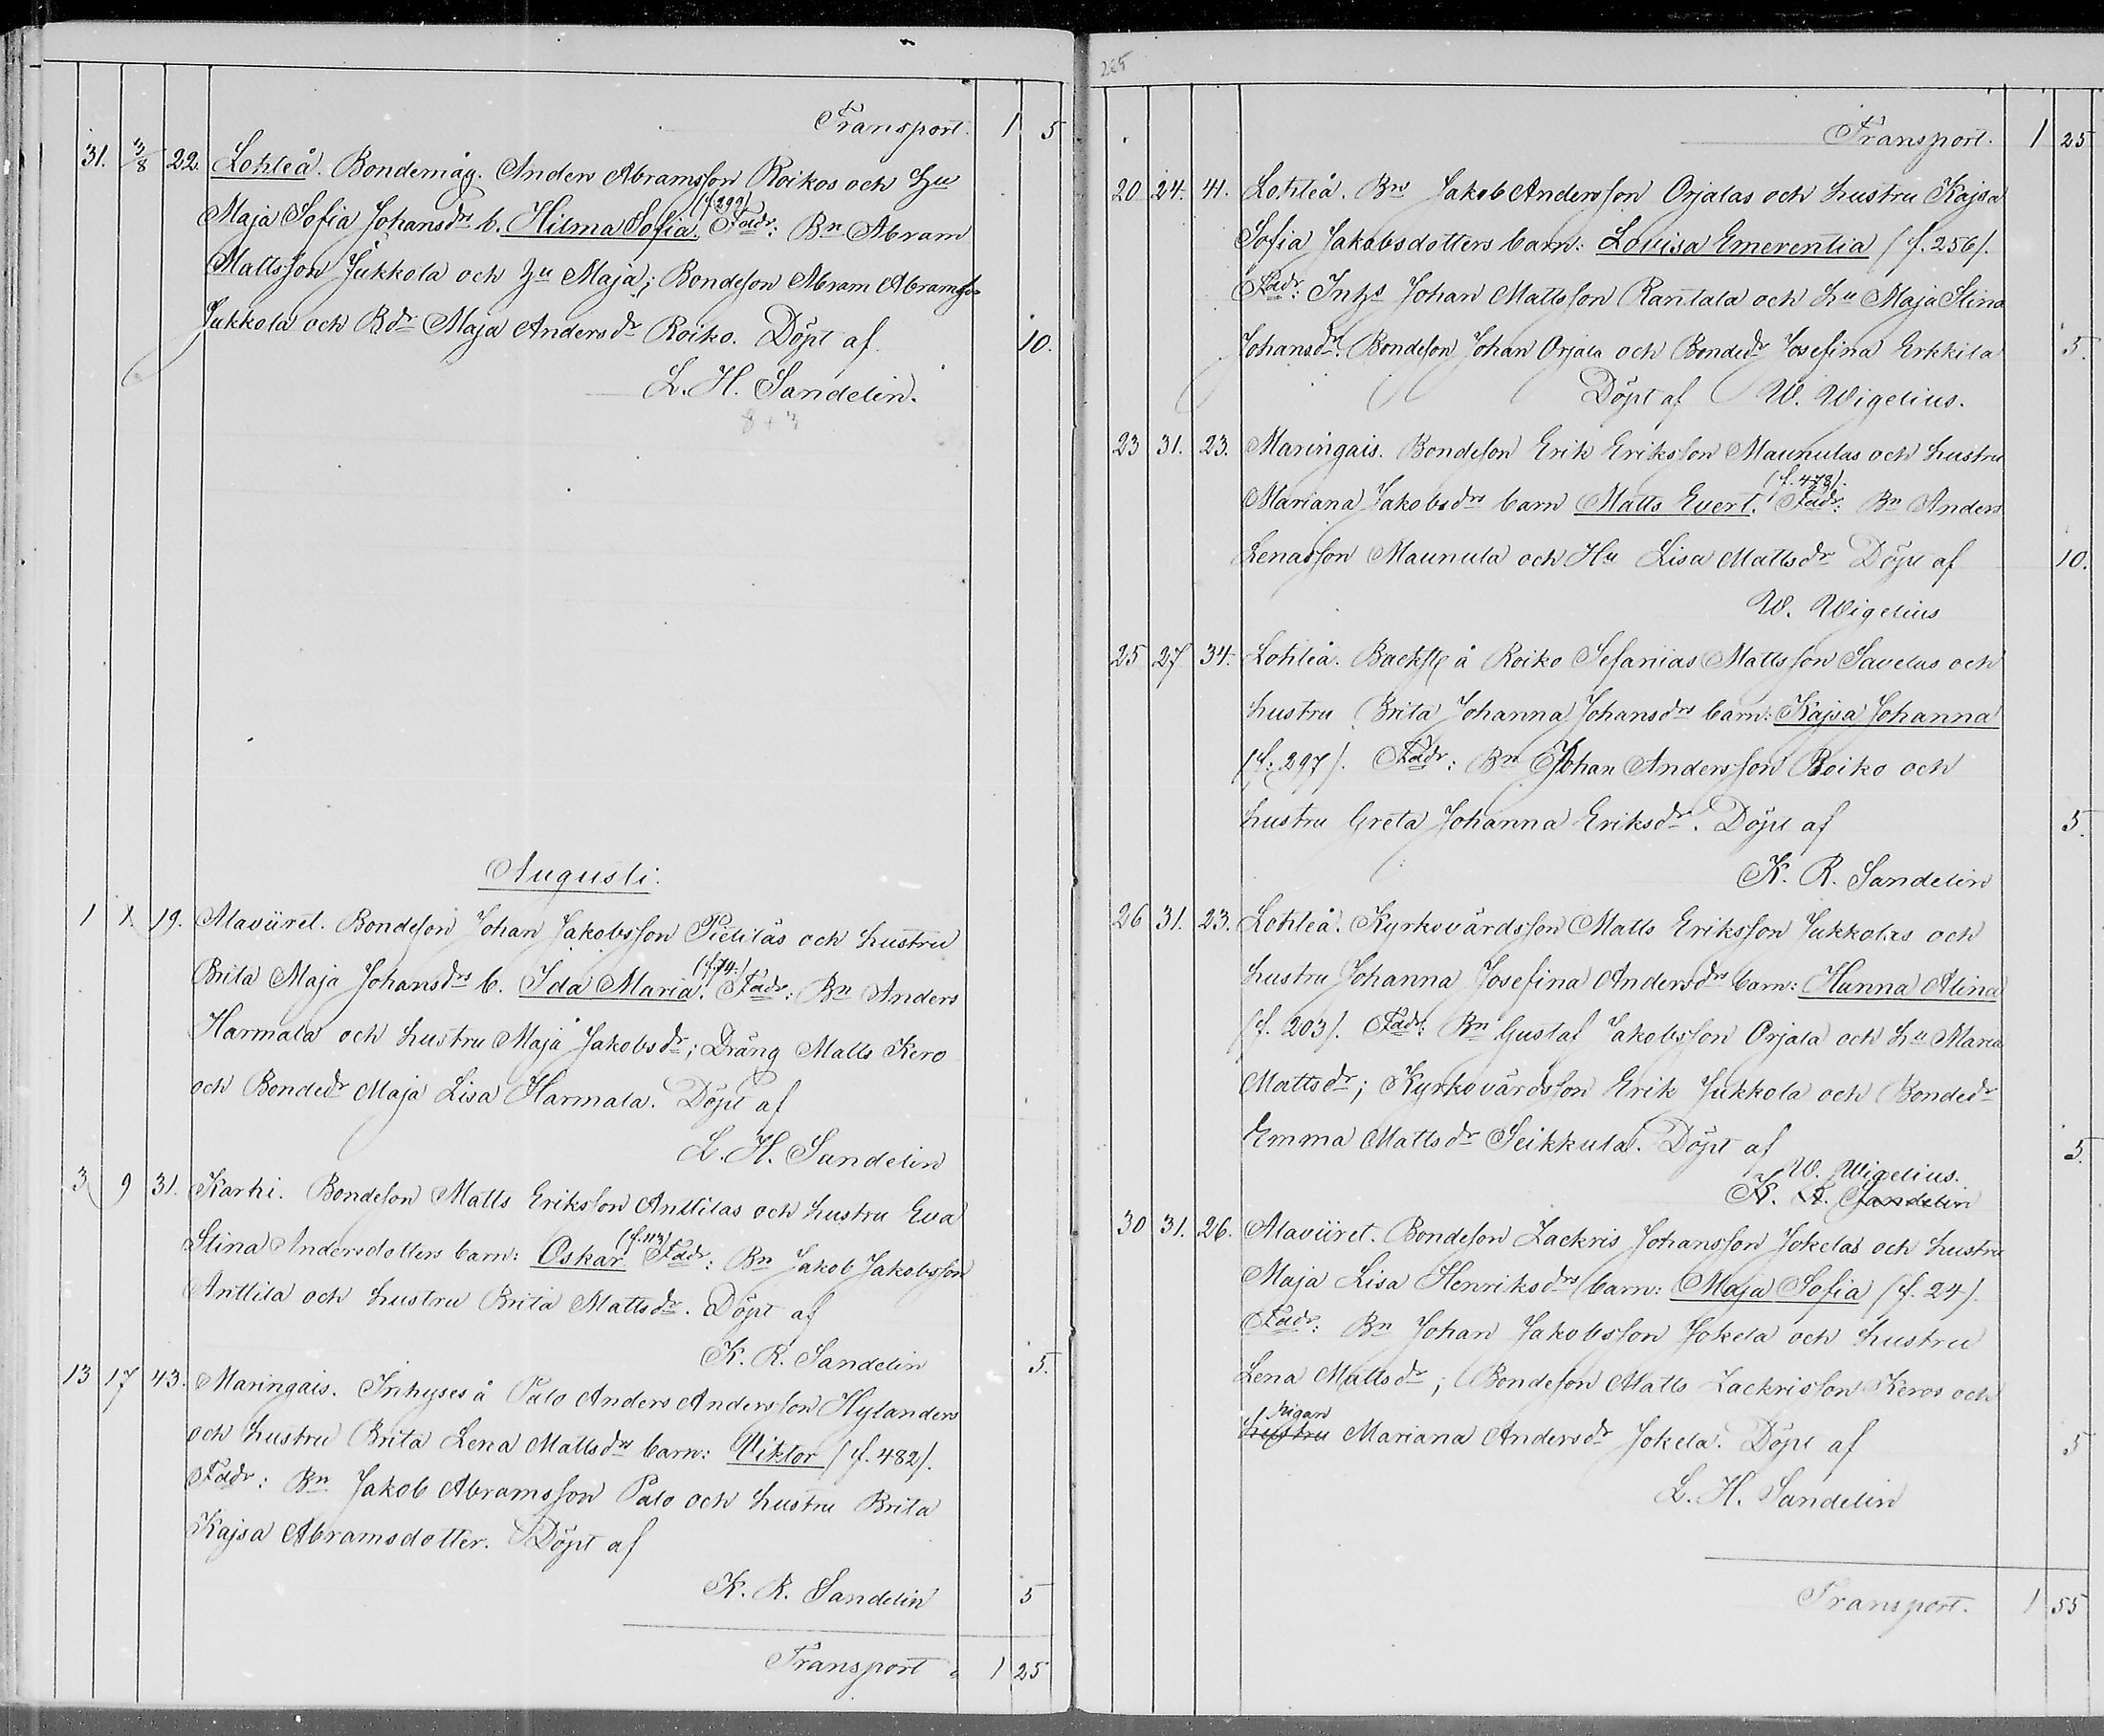 Transport. 1 5
31. 3/8 22. Lohteå. Bondemåg. Anders Abramsson Roikos och Hu
Maja Sofia Johansdr b. Hilma Sofia. (f.299) Fadr: Bn Abram
Mattsson Jukkola och Hu Maja; Bondeson Abram Abramsson
Jukkola och Bdr Maja Andersdr Roiko. Döpt af 10.
L. H. Sandelin.
8+3
Augusti.
1 1. 19. Alaviiret. Bondeson Johan Jakobsson Pietiläs och hustru
Brita Maja Johansdrs b. Ida Maria. (f.74.) Fadr: Bn Anders
Harmala och hustru Maja Jakobsdr; Dräng Matts Kero
och Bondedr Maja Lisa Harmala. Döpt af
L. H. Sandelin
3 9 31. Karhi. Bondeson Matts Eriksson Anttilas och hustru Eva
Stina Andersdotters barn: Oskar (f.113) Fadr: Bn Jakob Jakobsson
Anttila och hustru Brita Mattsdr. Döpt af
K. R. Sandelin 5.
13 17 43. Maringais. Inhyses å Palo Anders Andersson Hylanders
och hustru Brita Lena Mattsdrs barn: Viktor (f. 482).
Fadr: Bn Jakob Abramsson Palo och hustru Brita
Kajsa Abramsdotter. Döpt af
K. R. Sandelin 5
Transport 1 25
265
Transport. 1 25
20 24. 41. Lohteå. Bn Jakob Andersson Orjalas och hustru Kajsa
Sofia Jakobsdotters barn: Lovisa Emerentia (f. 256).
Fadr: Inhs Johan Mattsson Rantala och hu Maja Stina
Johansdr. Bondeson Johan Orjala och Bondedr Josefina Erkkila 5.
Döpt af W. Wigelius.
23 31. 23. Maringais. Bondeson Erik Eriksson Maunulas och hustru
Mariana Jakobsdrs barn Matts Evert. (f. 478). Fadr: Bn Anders
Lenasson Maunula och Hu Lisa Mattsdr Döpt af 10.
W. Wigelius
25 27 34. Lohteå. Backst å Roiko Sefanias Mattsson Savelas och
hustru Brita Johanna Johansdrs barn: Kajsa Johanna
(f. 297). Fadr: Bn Johan Andersson Roiko och
hustru Greta Johanna Eriksdr. Döpt af 5.
K. R. Sandelin
26 31. 23. Lohteå. Kyrkovärdsson Matts Eriksson Jukkolas och
hustru Johanna Josefina Andersdrs barn: Hanna Alina
(f. 203). Fadr: Bn Gustaf Jakobsson Orjala och hu Maria
Mattsdr; Kyrkovärdsson Erik Jukkola och Bondedr
Emma Mattsdr Seikkula. Döpt af 5.
W. Wigelius.
K. R. Sandelin
30 31. 26. Alaviiret. Bondeson Zackris Johansson Jokelas och hustru
Maja Lisa Henriksdrs barn: Maja Sofia (f. 24).
Fadr: Bn Johan Jakobsson Jokela och hustru
Lena Mattsdr; Bondeson Matts Zackrisson Keros och
pigan
hustru Mariana Andersdr Jokela. Döpt af 5
L. H. Sandelin
Transport. 1 55